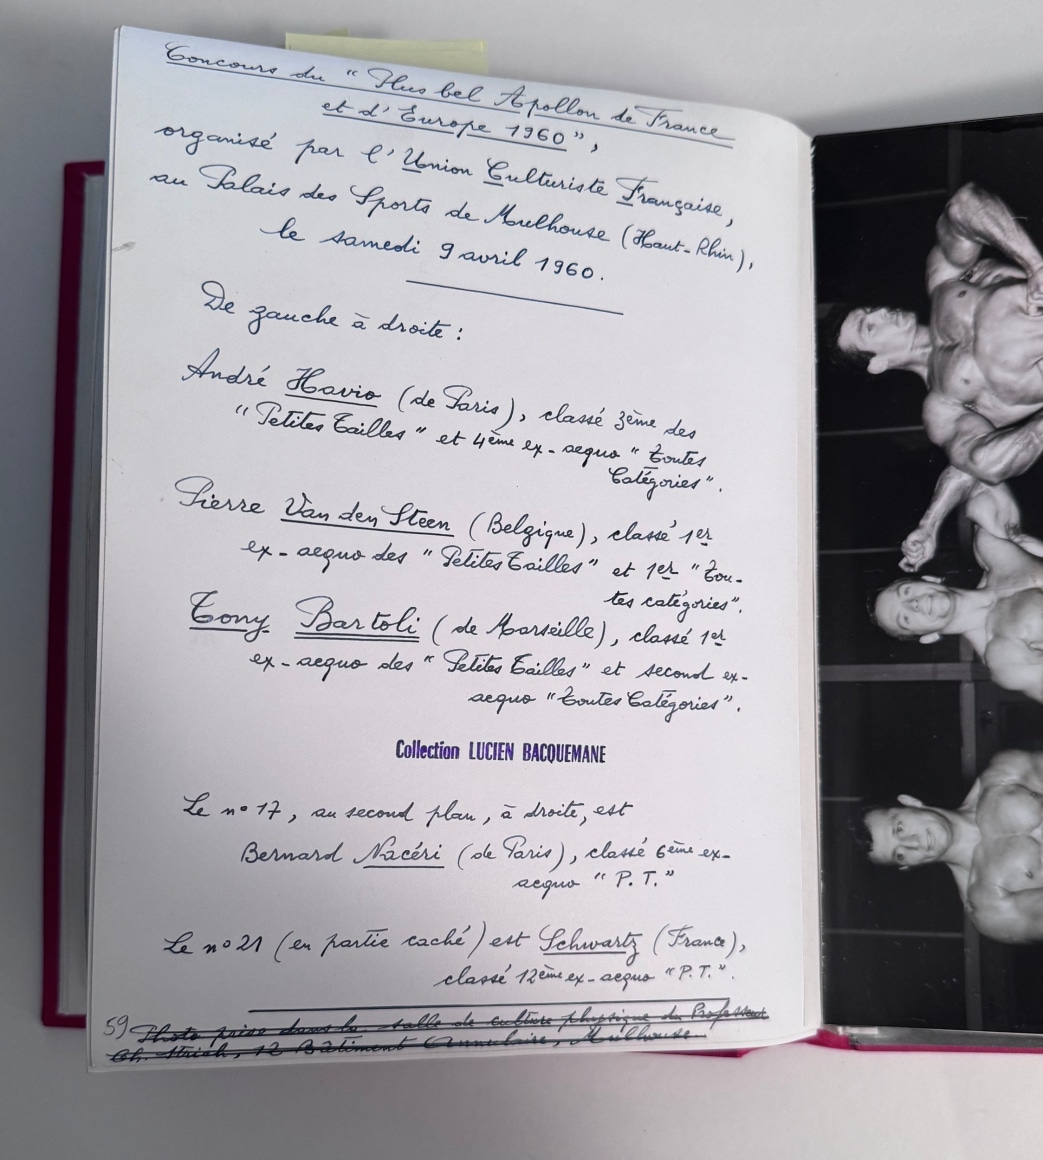 Concours du "Plus bel Apollon de France
et d'Europe 1960",
organisé par l'Union Culturiste Française,
au Palais des Sports de Mulhouse (Haut-Rhin),
le samedi 9 avril 1960.
De gauche à droite :
André Havio (de Paris), classé 3ème des
"Petites Tailles" et 4ème ex-aequo "Toutes
Catégories".
Pierre Van den Steen (Belgique), classé 1er
ex-aequo des "Petites Tailles" et 1er "Tou-
tes catégories".
Tony Bartoli (de Marseille), classé 1er
ex-aequo des "Petites Tailles" et second ex-
aequo "Toutes Catégories".
Collection LUCIEN BACQUEMANE
Le n° 17, au second plan, à droite, est
Bernard Nacéri (de Paris), classé 6ème ex-
aequo "P.T."
Le n° 21 (en partie caché) est Schwartz (France),
classé 12ème ex-aequo "P.T.".
59 Photo prise dans la salle de culture physique du Professeur
Ch. 12 Bâtiment Annulaire, Mulhouse